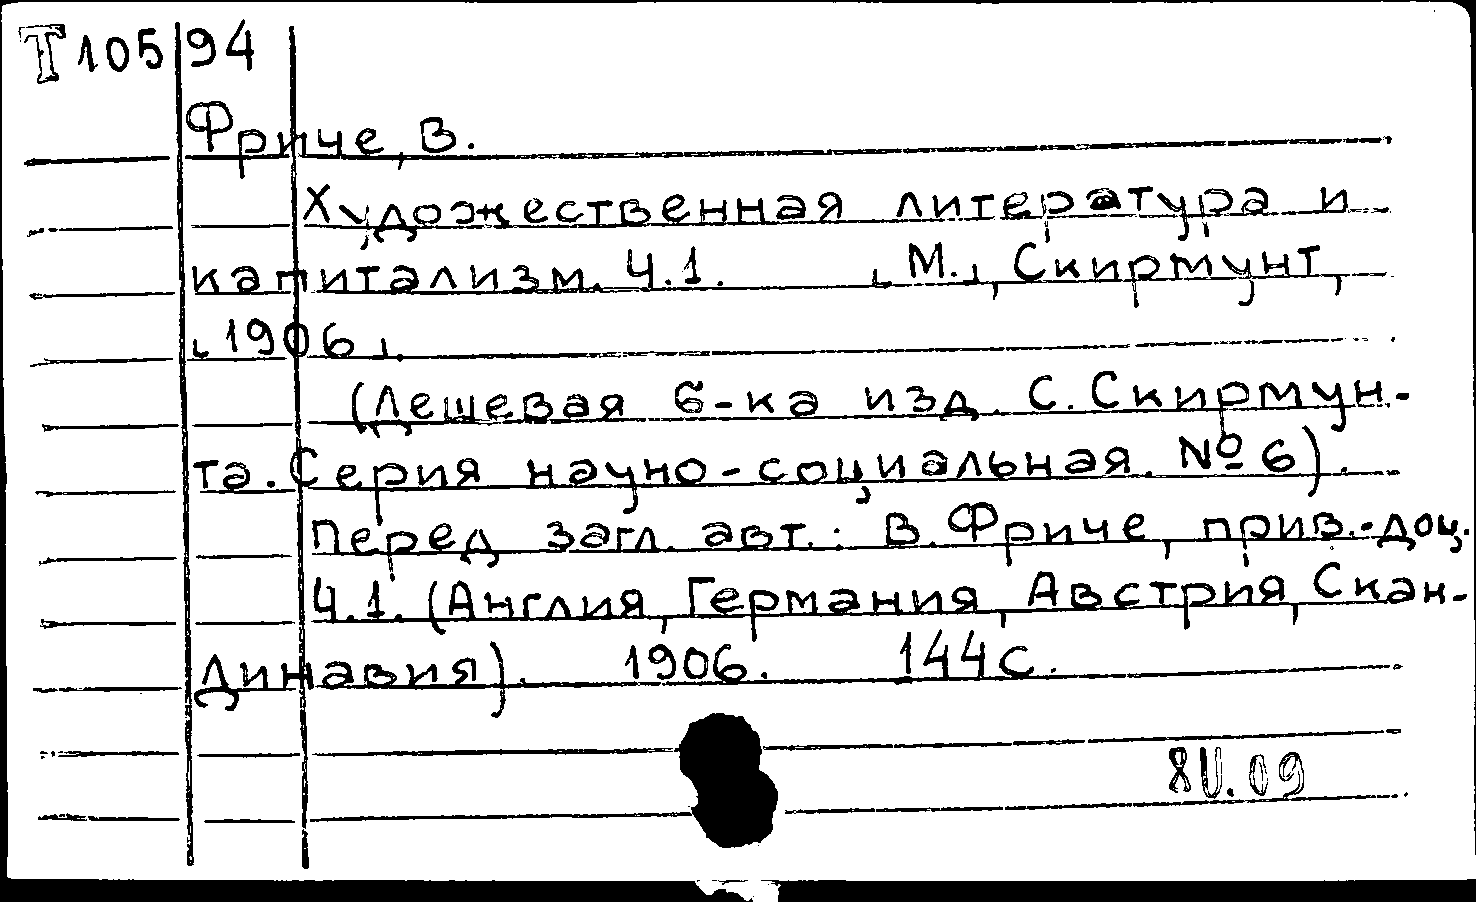 Т105/94
Фриче, В.
Художественная литература и
капитализм. Ч.1. [М.], Скирмунт,
[1906].
(Дешевая б-ка изд. С. Скирмун-
та. Серия науно-социальная. № 6).
Перед загл. авт.: В. Фриче, прив.-доц.
Ч.1. (Англия, Германия, Австрия, Скан-
динавия). 1906. 144с.